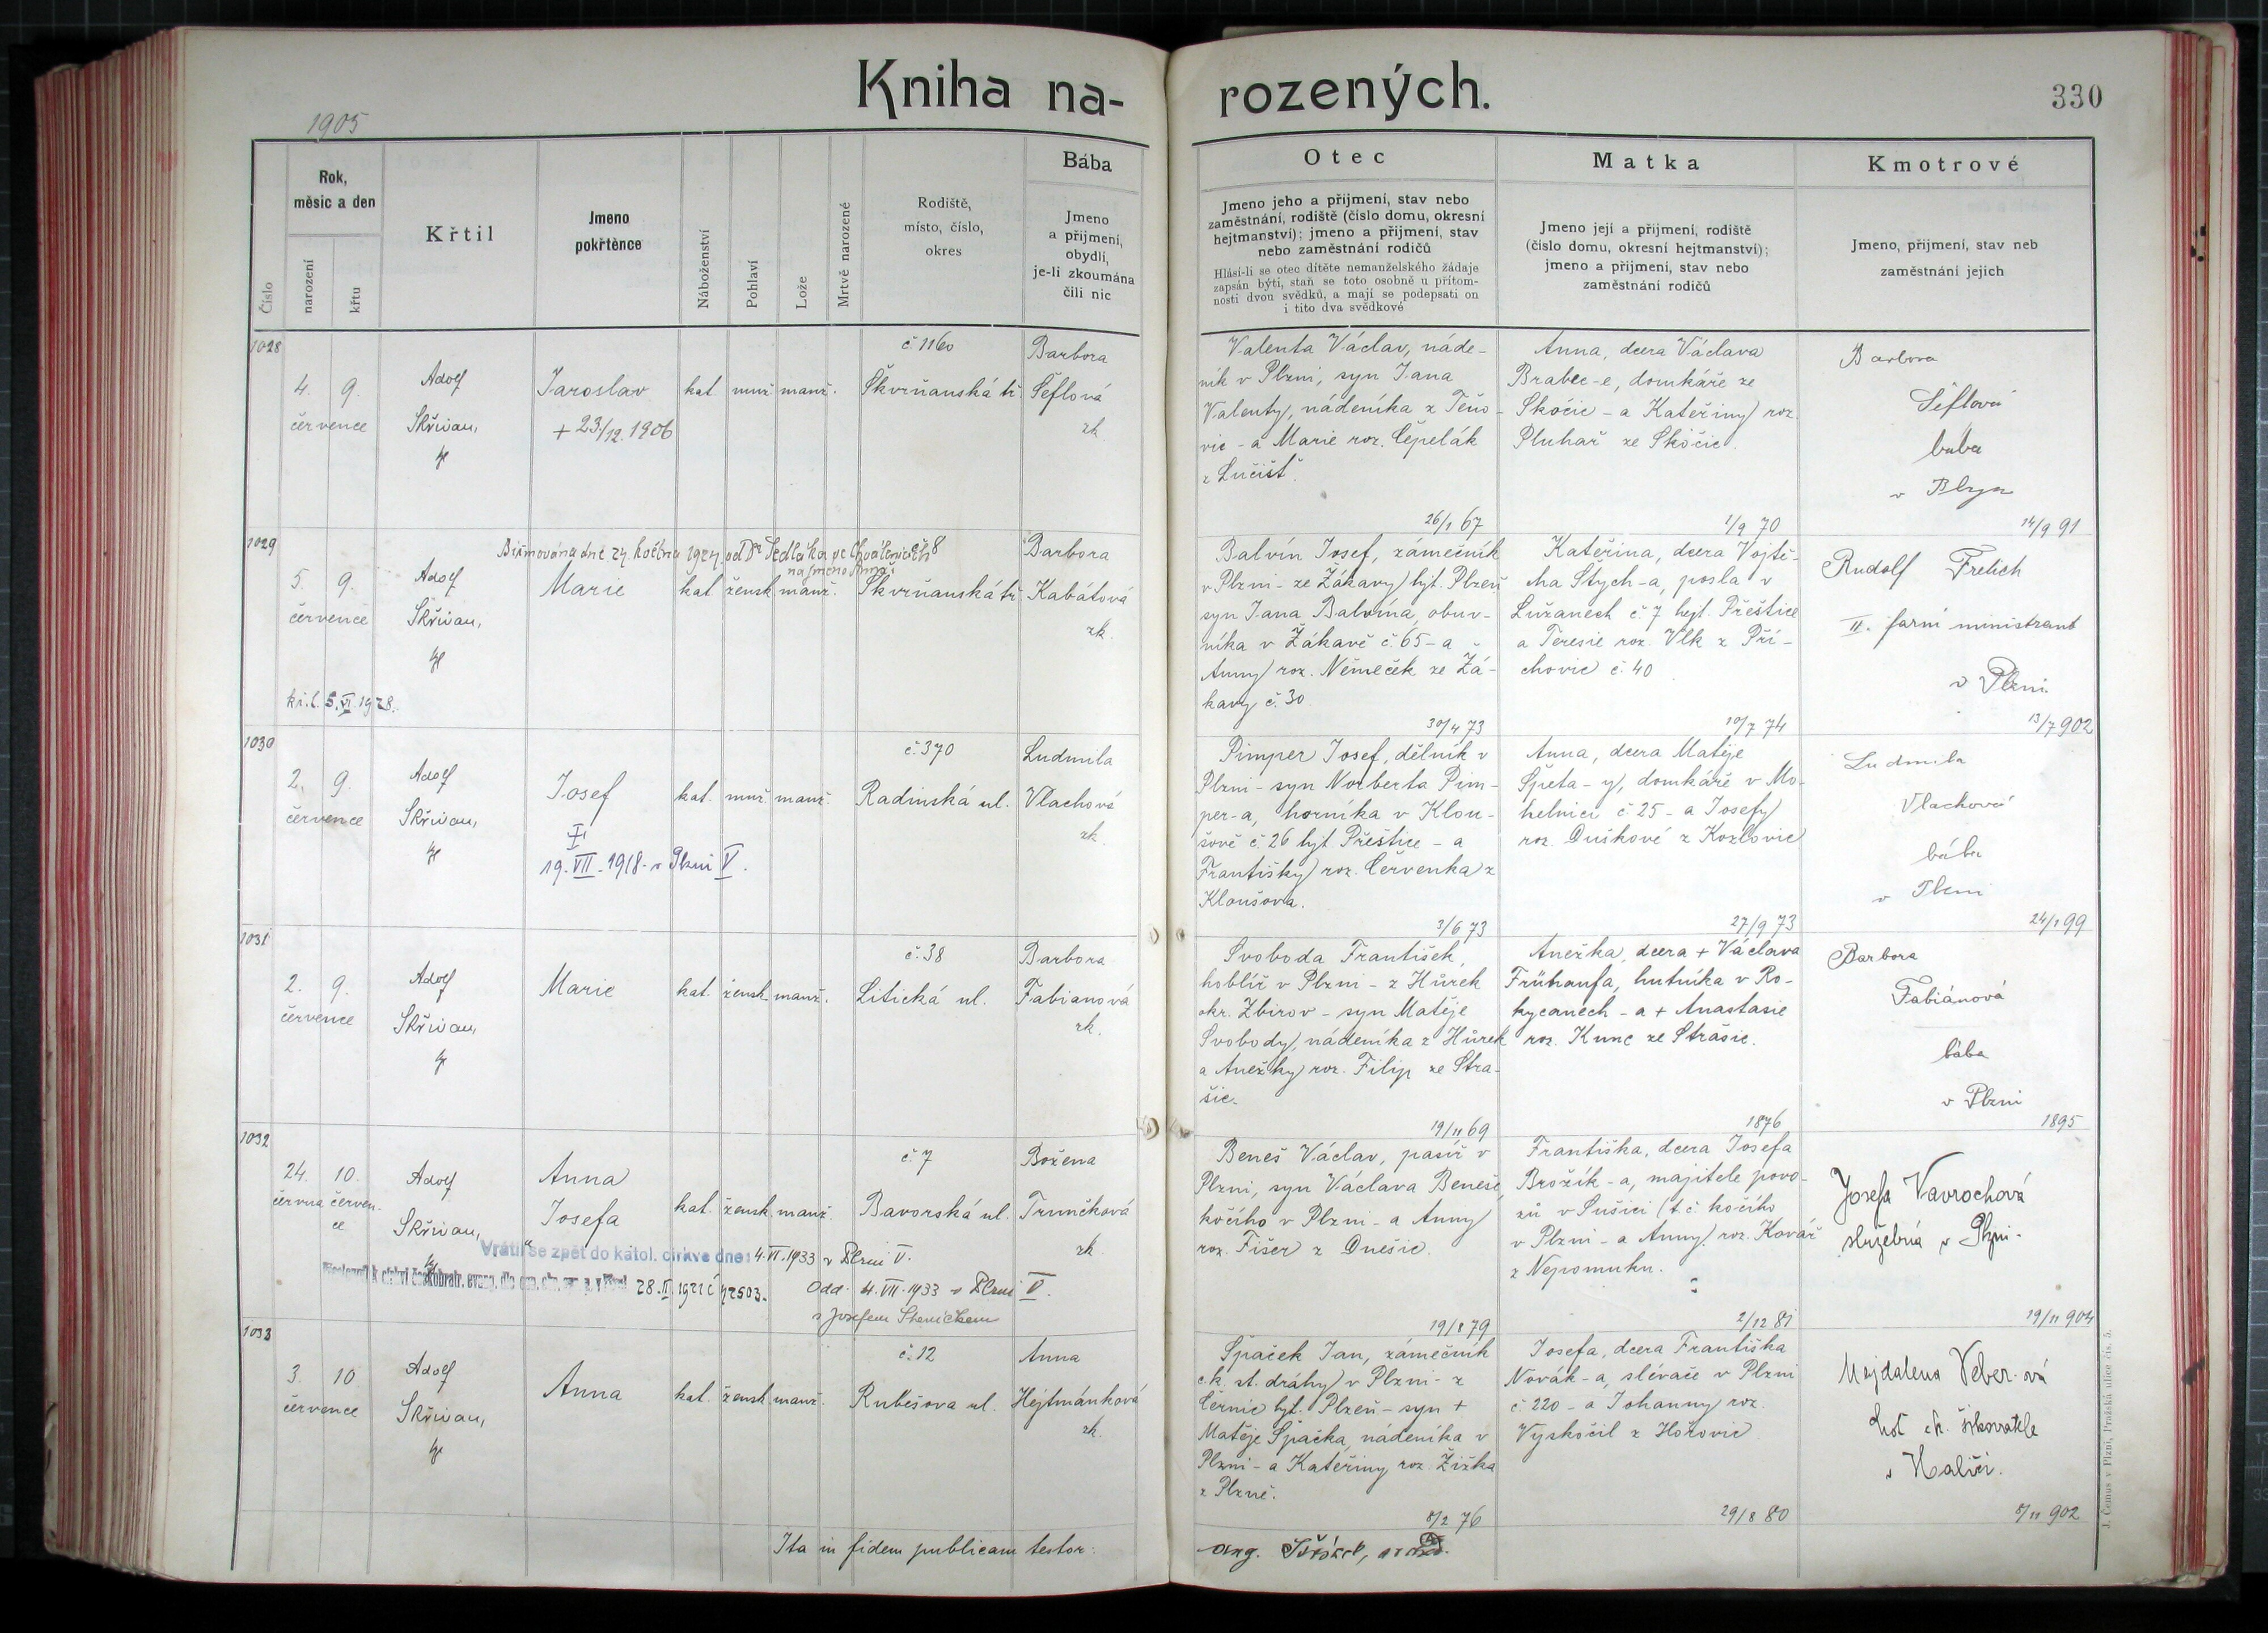 Kniha na-
rozených.
330
1905
Číslo
Rok,
měsíc a den
narození
křtu
Křtil
Jmeno
pokřtěnce
Náboženství
Pohlaví
Lože
Mrtvě narozené
Rodiště,
místo, číslo,
okres
Bába
Jmeno
a přijmení,
obydlí,
je-li zkoumána
čili nic
Otec
Jmeno jeho a přijmení, stav nebo
zaměstnání, rodiště (číslo domu, okresní
hejtmanství); jmeno a přijmení, stav
nebo zaměstnání rodičů
Hlásí-li se otec dítěte nemanželského žádaje
zapsán býti, staň se toto osobně u přítom-
nosti dvou svědků, a mají se podepsati on
i tito dva svědkové
Matka
Jmeno její a přijmení, rodiště
(číslo domu, okresní hejtmanství);
jmeno a přijmení, stav nebo
zaměstnání rodičů
Kmotrové
Jmeno, přijmení, stav neb
zaměstnání jejich
1028
4. 9.
července
Adolf
Skřivan,
Jaroslav
+ 23./12. 1906
kat. muž. manž.
č. 1160
Škvrňanská tř.
Barbora
Šeflová
zk.
Valenta Václav, náde-
ník v Plzni, syn Jana
Valenty, nádeníka z Těno-
vic - a Marie roz. Čepelák
z Lučišť.
26/1 67
Anna, dcera Václava
Brabec-e, domkáře ze
Skočic - a Kateřiny roz.
Pluhař ze Skočic.
1/9 70
Barbora
Šeflová
bába
v Plzni
14/9 91
1029
Biřmována dne 24 května 1924 od Dr Sedláka ve Chválenicích
na jmeno Anna
5. 9.
července
Adolf
Skřivan,
kř. l. 5. VI. 1928.
Marie
kat. žensk. manž.
č. 8
Škvrňanská tř.
Barbora
Kabátová
zk.
Balvín Josef, zámečník
v Plzni - ze Žákavy hjt. Plzeň,
syn Jana Balvína, obuv-
níka v Žákavě č. 65 - a
Anny roz. Němeček ze Žá-
kavy č. 30
30/4 73
Kateřina, dcera Vojtě-
cha Štych-a, posla v
Lužanech č. 7 hejt. Přeštice
a Teresie roz. Vlk z Pří-
chovic č. 40
10/7 74
Rudolf Frelich
II. farní ministrant
v Plzni
13/7 902
1030
2. 9.
července
Adolf
Skřivan,
Josef
19. VII. 1918 v Plzni V.
kat. muž. manž.
č. 370
Radinská ul.
Ludmila
Vlachová
zk.
Pimper Josef, dělník v
Plzni - syn Norberta Pim-
per-a, horníka v Klou-
šově č. 26 hjt. Přeštice - a
Františky roz. Červenka z
Kloušova.
3/6 73
Anna, dcera Matěje
Špeta-y, domkáře v Mo-
helnici č. 25 - a Josefy
roz. Duškové z Kozlovic
27/9 73
Ludmila
Vlachová
bába
v Plzni
24/1 99
1031
2. 9.
července
Adolf
Skřivan,
Marie
kat. žensk. manž.
č. 38
Litická ul.
Barbora
Fabianová
zk.
Svoboda František,
hoblíř v Plzni - z Hůrek
okr. Zbirov - syn Matěje
Svobody, nádeníka z Hůrek
a Anežky roz. Filip ze Stra-
šic.
19/11 69
Anežka, dcera + Václava
Frühaufa, hutníka v Ro-
kycanech - a + Anastasie
roz. Kunc ze Strašic.
1876
Barbora
Fabiánová
bába
v Plzni
1895
1032
24. 10.
června červen-
ce
Adolf
Skřivan,
Anna
Josefa
kat. žensk. manž.
č. 7
Bavorská ul.
Božena
Trunčková
zk.
Vrátil se zpět do katol. církve dne: 4. VI. 1933 v Plzni V.
28. II. 1921 č. 42503.
Odd. 4. VII. 1933 v Plzni V.
s Josefem
Beneš Václav, pasíř v
Plzni, syn Václava Beneše,
kočího v Plzni - a Anny
roz. Fišer z Dnešic.
19/8 79
Františka, dcera Josefa
Brožík-a, majitele povo-
zů v Sušici (t. č. kočího
v Plzni - a Anny roz. Kovář
z Nepomuku.
2/12 81
Josefa Vavrochová
služebná v Plzni.
19/11 904
1033
3. 10
července
Adolf
Skřivan,
Anna
kat. žensk. manž.
č. 12
Rubešova ul.
Anna
Hejtmánková
zk.
Špaček Jan, zámečník
c. k. st. dráhy v Plzni - z
Černic hjt. Plzeň - syn +
Matěje Špačka, nádeníka v
Plzni - a Kateřiny roz. Žižka
z Plzně.
8/2 76
Josefa, dcera Františka
Novák-a, slévače v Plzni
č. 220 - a Johanny roz.
Vyskočil z Hořovic
29/8 80
Majdalena Veber-vá
choť c. k. šikovatele
v Haliči.
8/11 902
Ita in fidem publicam testor:
J. Čemus v Plzni, Pražská ulice čís. 5.